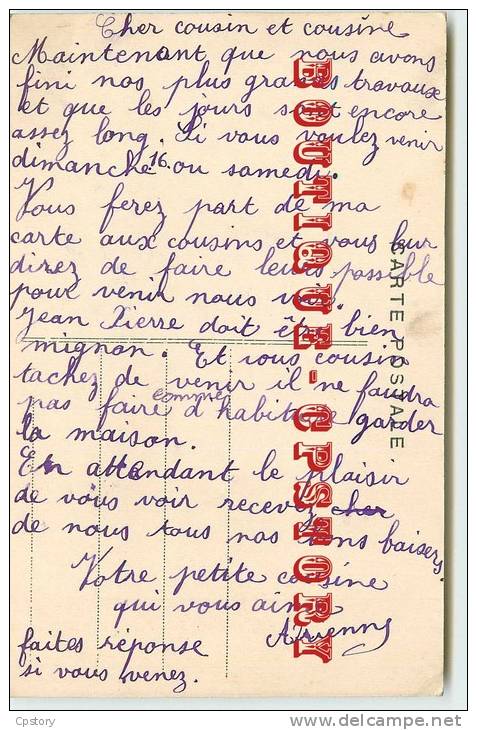 Cher cousin et cousine
Maintenant que nous avons
fini nos plus grands travaux
et que les jours sont encore
assez long. Si vous voulez venir
dimanche 16. ou samedi.
Vous ferez part de ma
carte aux cousins et vous leur
direz de faire leurs possible
pour venir nous voir.
Jean Pierre doit être bien
mignon. Et vous cousin
tachez de venir il ne faudra
pas faire comme d'habitude garder
la maison.
En attendant le plaisir
de vous voir recevez cher
de nous tous nos bons baisers.
Votre petite cousine
qui vous aime
faites réponse
si vous venez.
CARTE POSTALE
BOUTIQUE-CPSTORY
Cpstory
delcampe.net